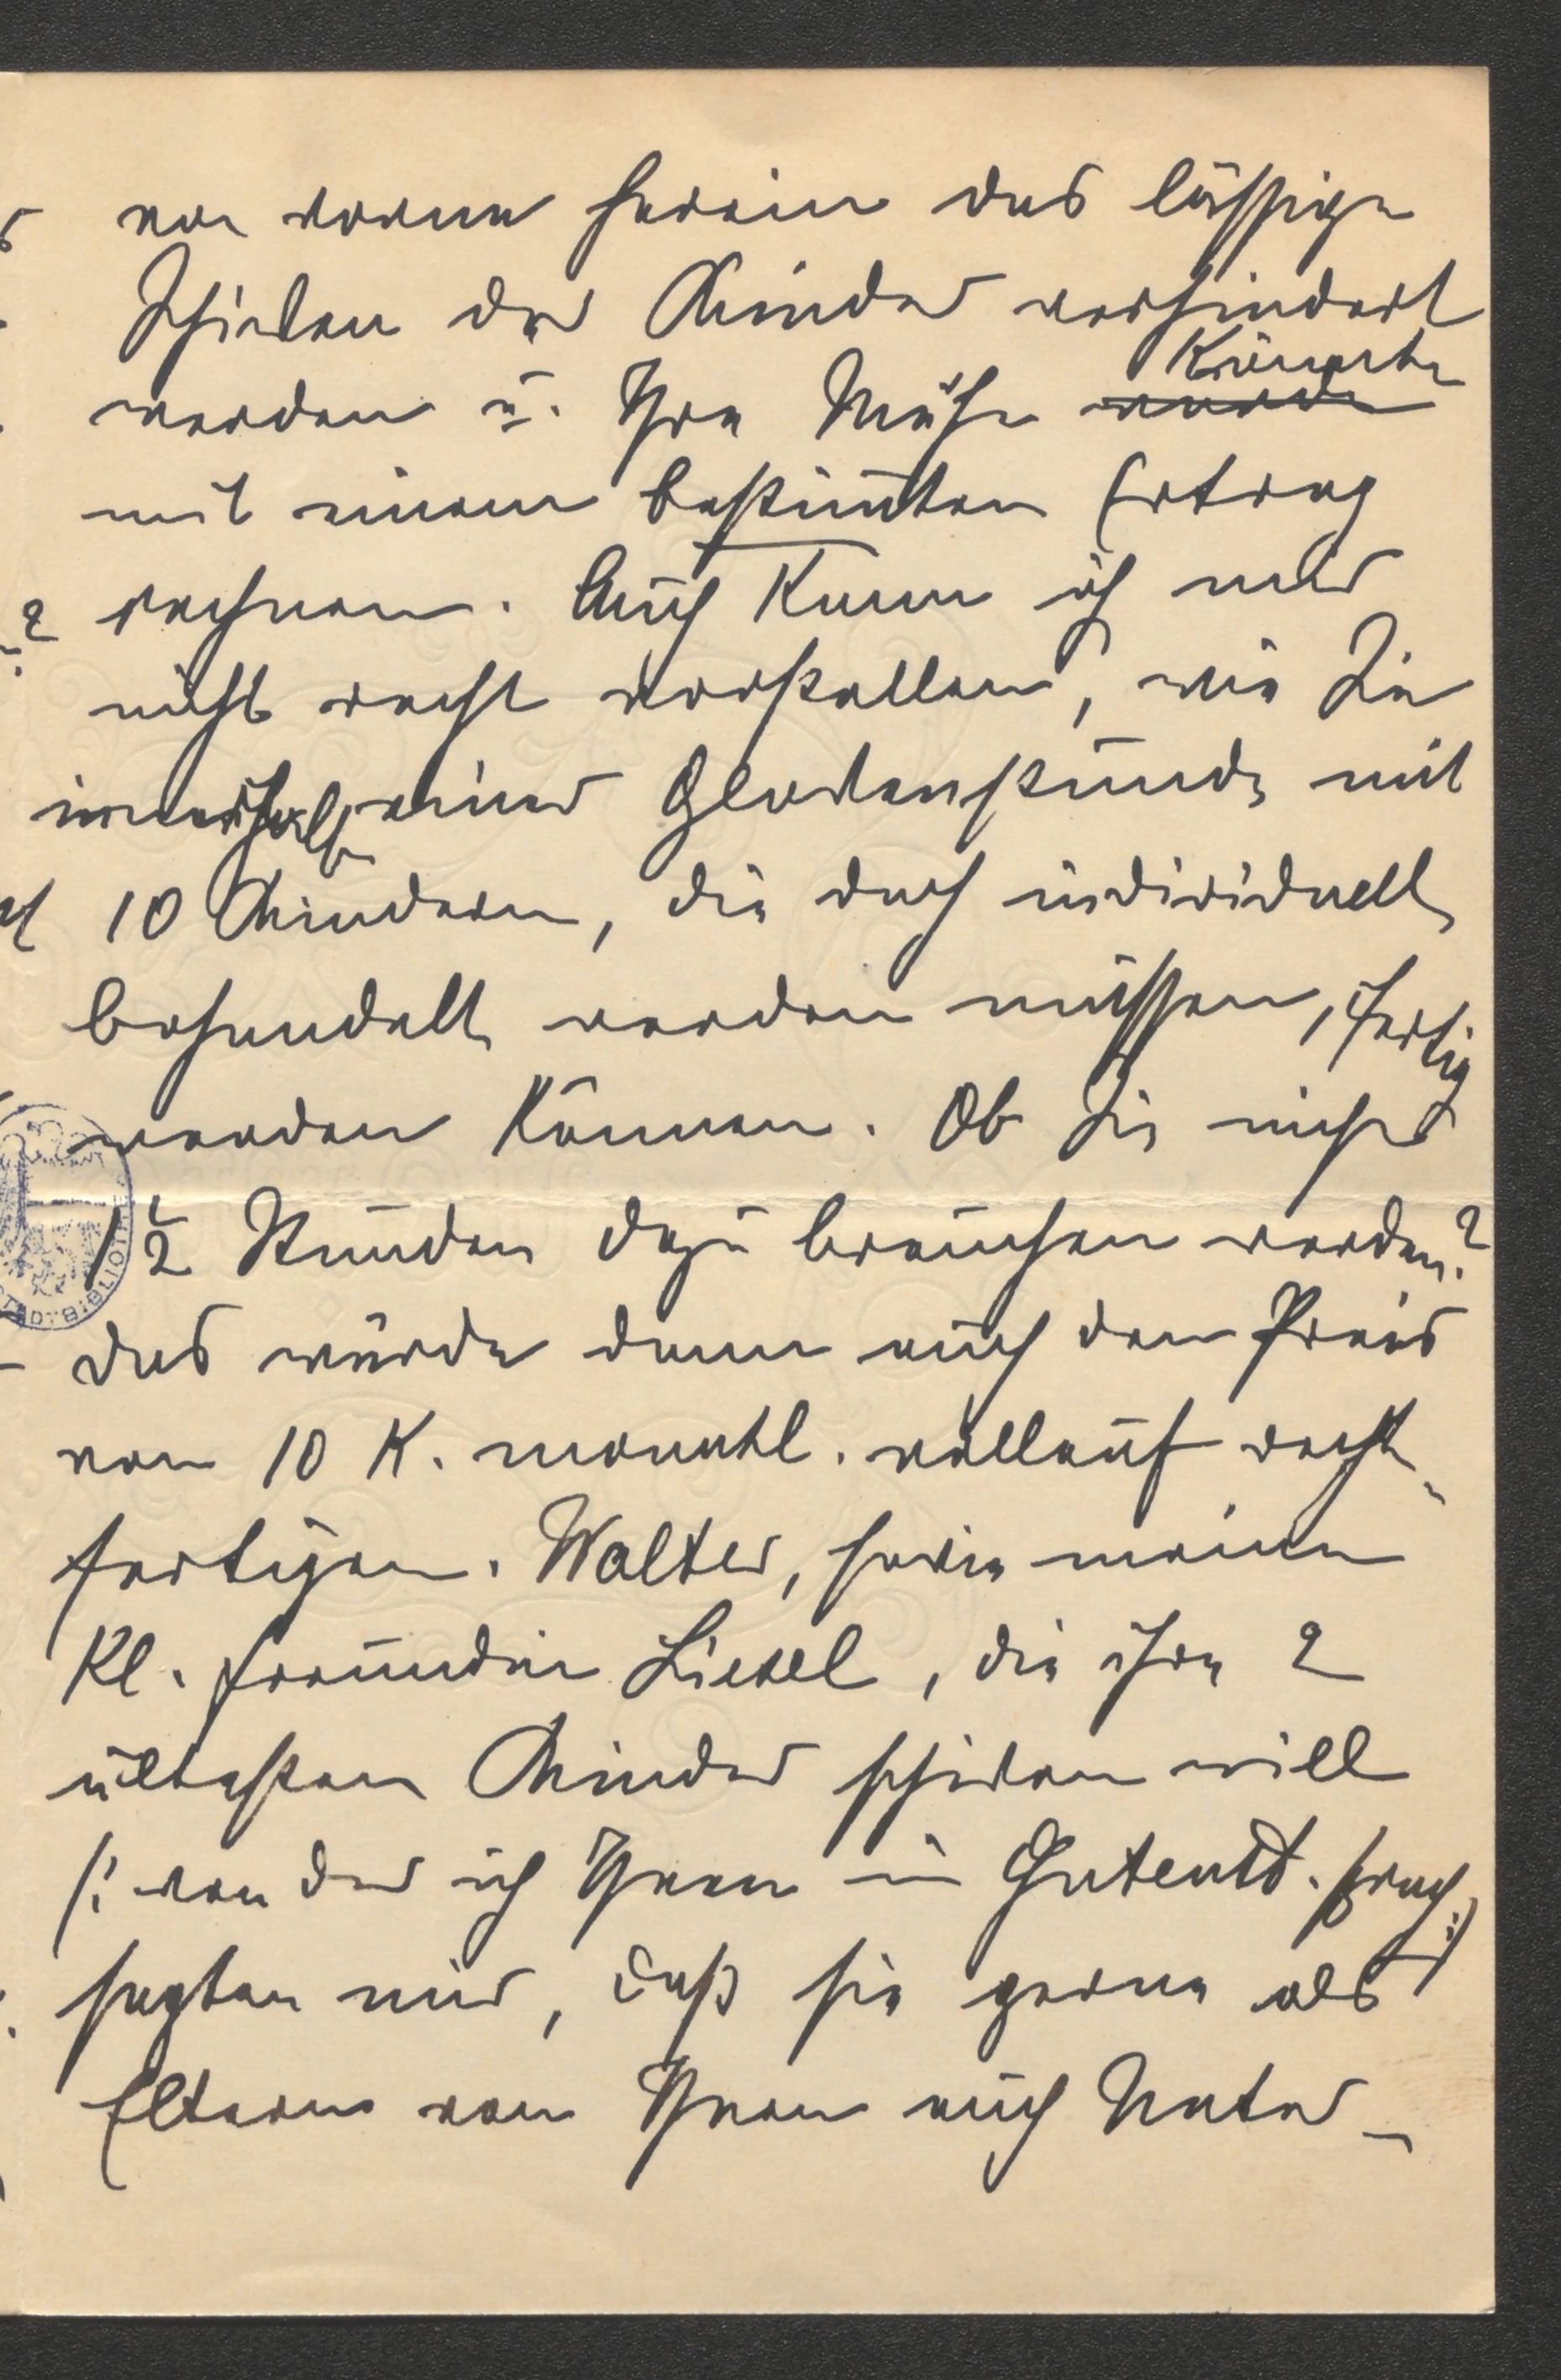 von vorne herein das lässige
Schicken der Kinder verhindert
könnte
werden u. Ihre Mühe würde
mit einem bestim̄ten Ertrag
rechnen. Auch kann ich mir
nicht recht vorstellen, wie Sie
innerhalb einer Glockenstunde mit
10 Kindern, die doch individuell
behandelt werden müssen, fertig
werden können. Ob Sie nicht
1½ Stunden dazu brauchen werden?
das würde dann auch den Preis
von 10 K. monatl. vollauf recht-
fertigen. Walter, sowie meine
kl. Freundin Liesel, die ihre 2
ältesten Kinder schicken will
(: von der ich Ihnen in Gutenst. sprach :)
sagten mir, daß sie gerne als
Eltern von Ihnen auch Unter-